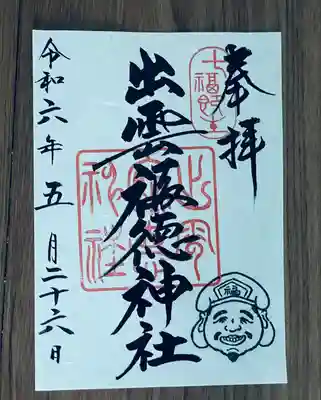 奉拝
七福神
出雲福徳神社
令和六年五月二十六日
福